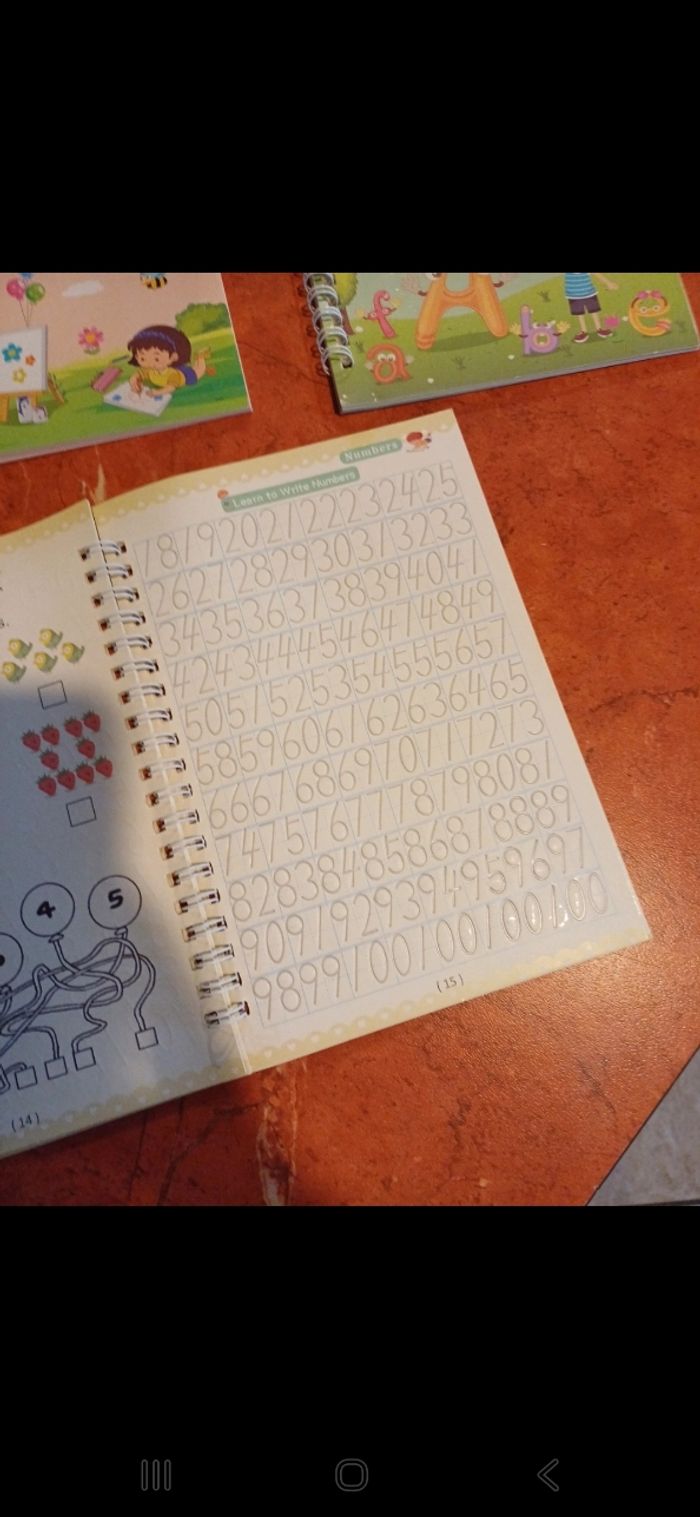 f A b e
a
Numbers
Learn to Write Numbers
18 19 20 21 22 23 24 25
26 27 28 29 30 31 32 33
34 35 36 37 38 39 40 41
42 43 44 45 46 47 48 49
50 51 52 53 54 55 56 57
58 59 60 61 62 63 64 65
66 67 68 69 70 71 72 73
74 75 76 77 78 79 80 81
82 83 84 85 86 87 88 89
90 91 92 93 94 95 96 97
98 99 100 100 100 100
(15)
4 5
(14)